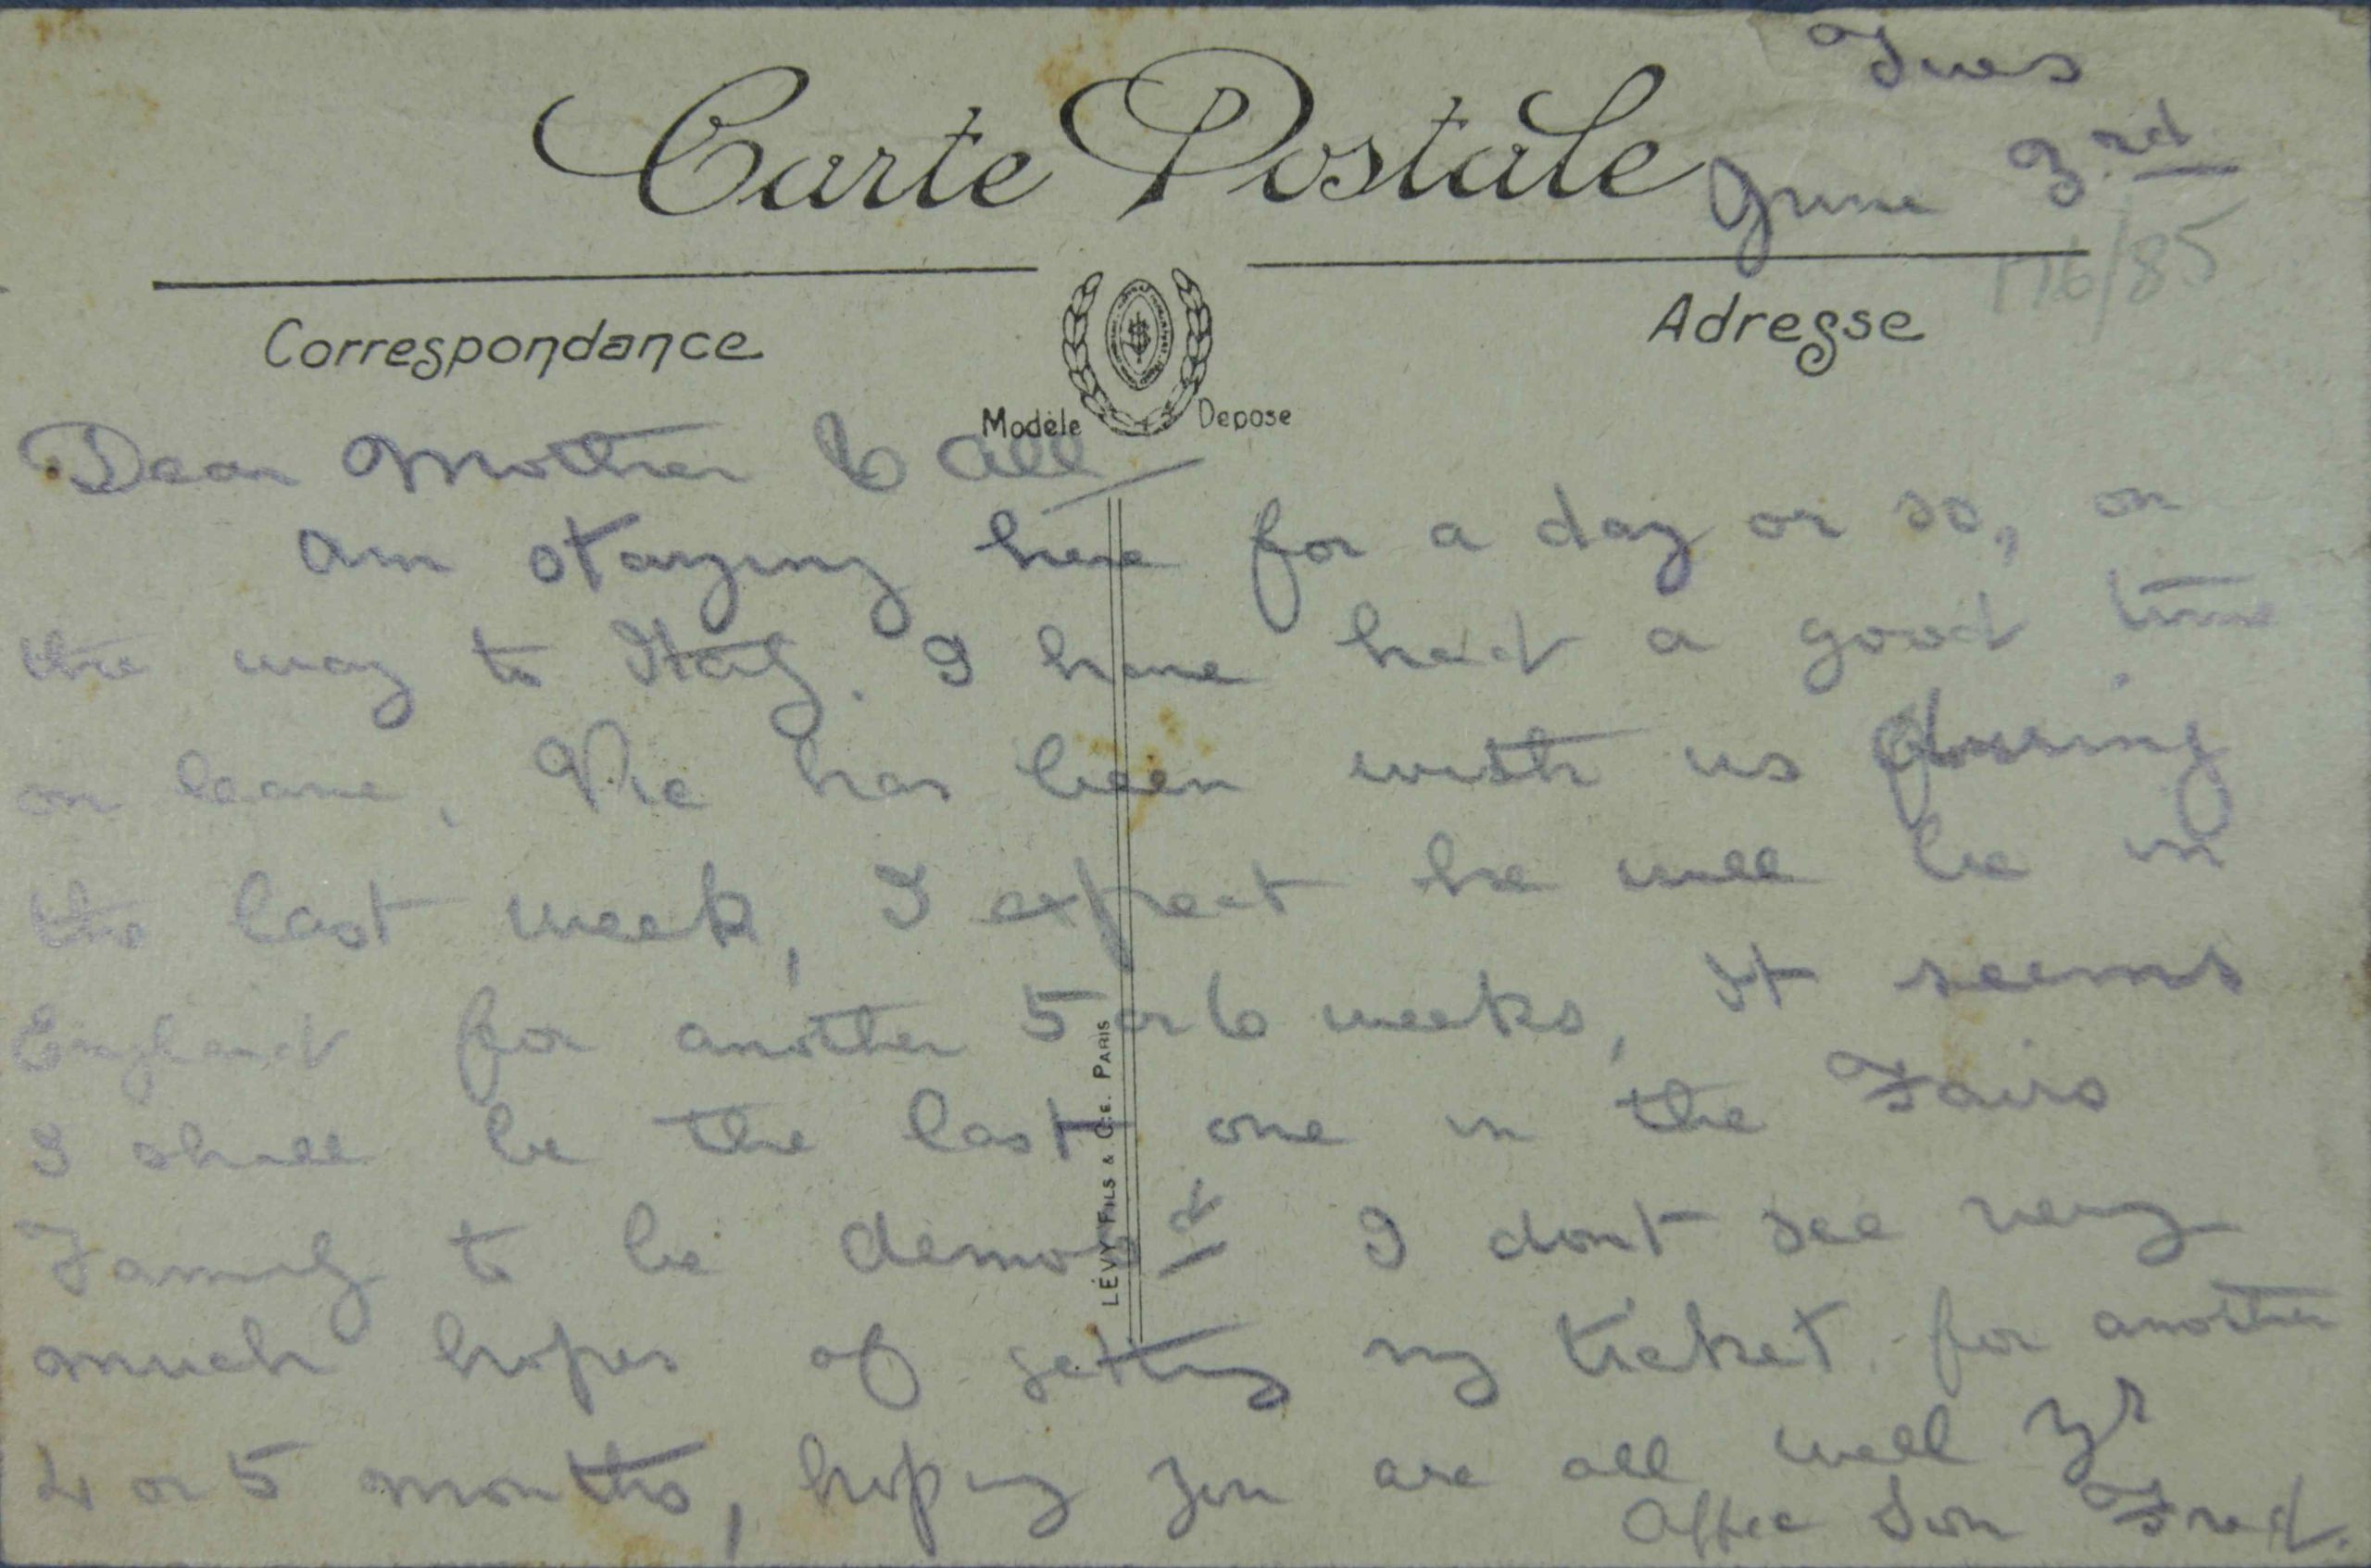 Tues
Carte Postale
June 3rd
176/85
Correspondance
Adresse
Modèle Deposé
Dear Mother & all
Am staying here for a day or so, on
the way to Italy. I have had a good time
on leave. Vic has been with us during
the last week, I expect he will be in
England for another 5 or 6 weeks, It seems
I shall be the last one in the Fairs
Family to be demobd I dont see very
much hopes of getting my ticket for another
4 or 5 months, hoping you are all well Yr
Affec Son Fred.
LÉVY FILS & CIE. PARIS